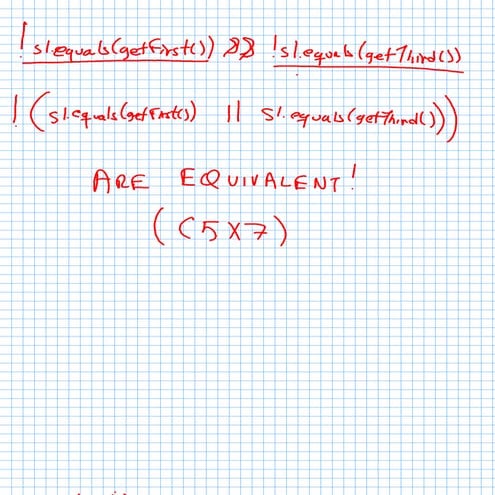 !s1.equals(getFirst()) && !s1.equals(getThird())
!(s1.equals(getFirst()) || s1.equals(getThird()))
ARE EQUIVALENT!
((5X7)